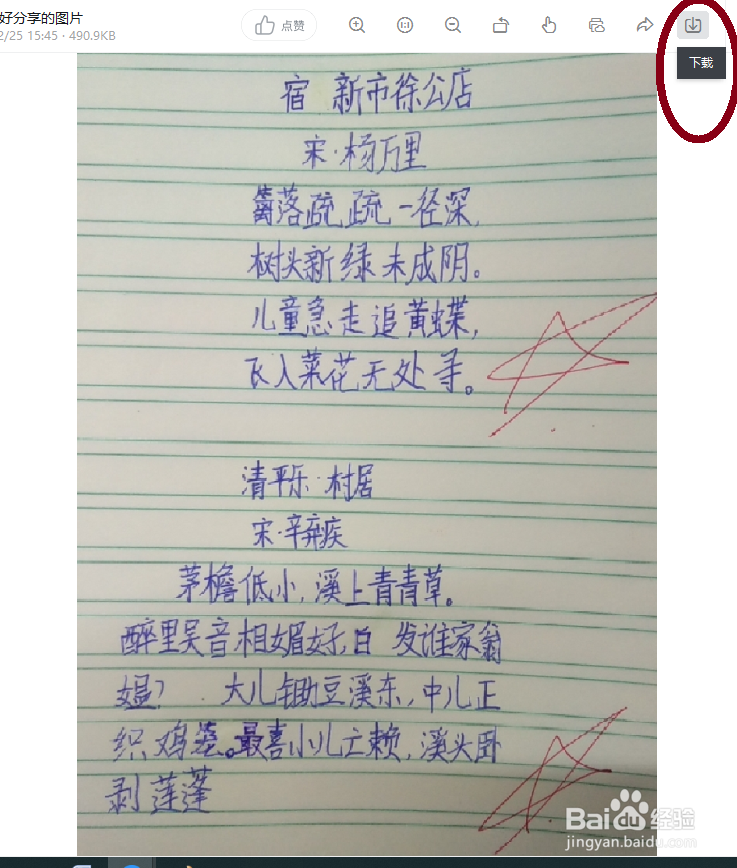 好分享的图片
2/25 15:45 · 490.9KB
点赞
下载
宿 新市徐公店
宋·杨万里
篱落疏疏一径深,
树头新绿未成阴。
儿童急走追黄蝶,
飞入菜花无处寻。
清平乐·村居
宋·辛弃疾
茅檐低小,溪上青青草。
醉里吴音相媚好,白发谁家翁
媪? 大儿锄豆溪东,中儿正
织鸡笼。最喜小儿亡赖,溪头卧
剥莲蓬
Baidu经验
jingyan.baidu.com